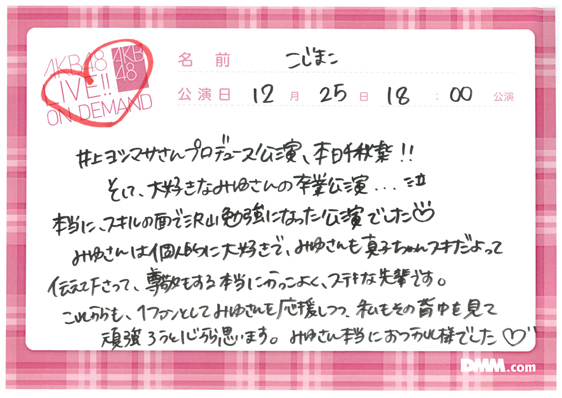 AKB48
LIVE!!
ON DEMAND
AKB
48
名前 こじまこ
公演日 12月25日 18:00 公演
井上ヨシマサさんプロデュース公演、本日千秋楽!!
そして、大好きなみゆさんの卒業公演...泣
本当に、スキルの面で沢山勉強になった公演でした♡
みゆさんは個人的に大好きで、みゆさんも真子ちゃんスキだよって
伝えて下さって、尊敬もする本当にかっこよく、ステキな先輩です。
これからも、1ファンとしてみゆさんを応援しつつ、私もその背中を見て
頑張ろうと心から思います。みゆさん本当におつかれ様でした♡
DMM.com